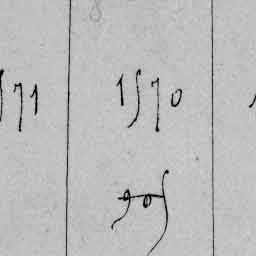 571 1570
905